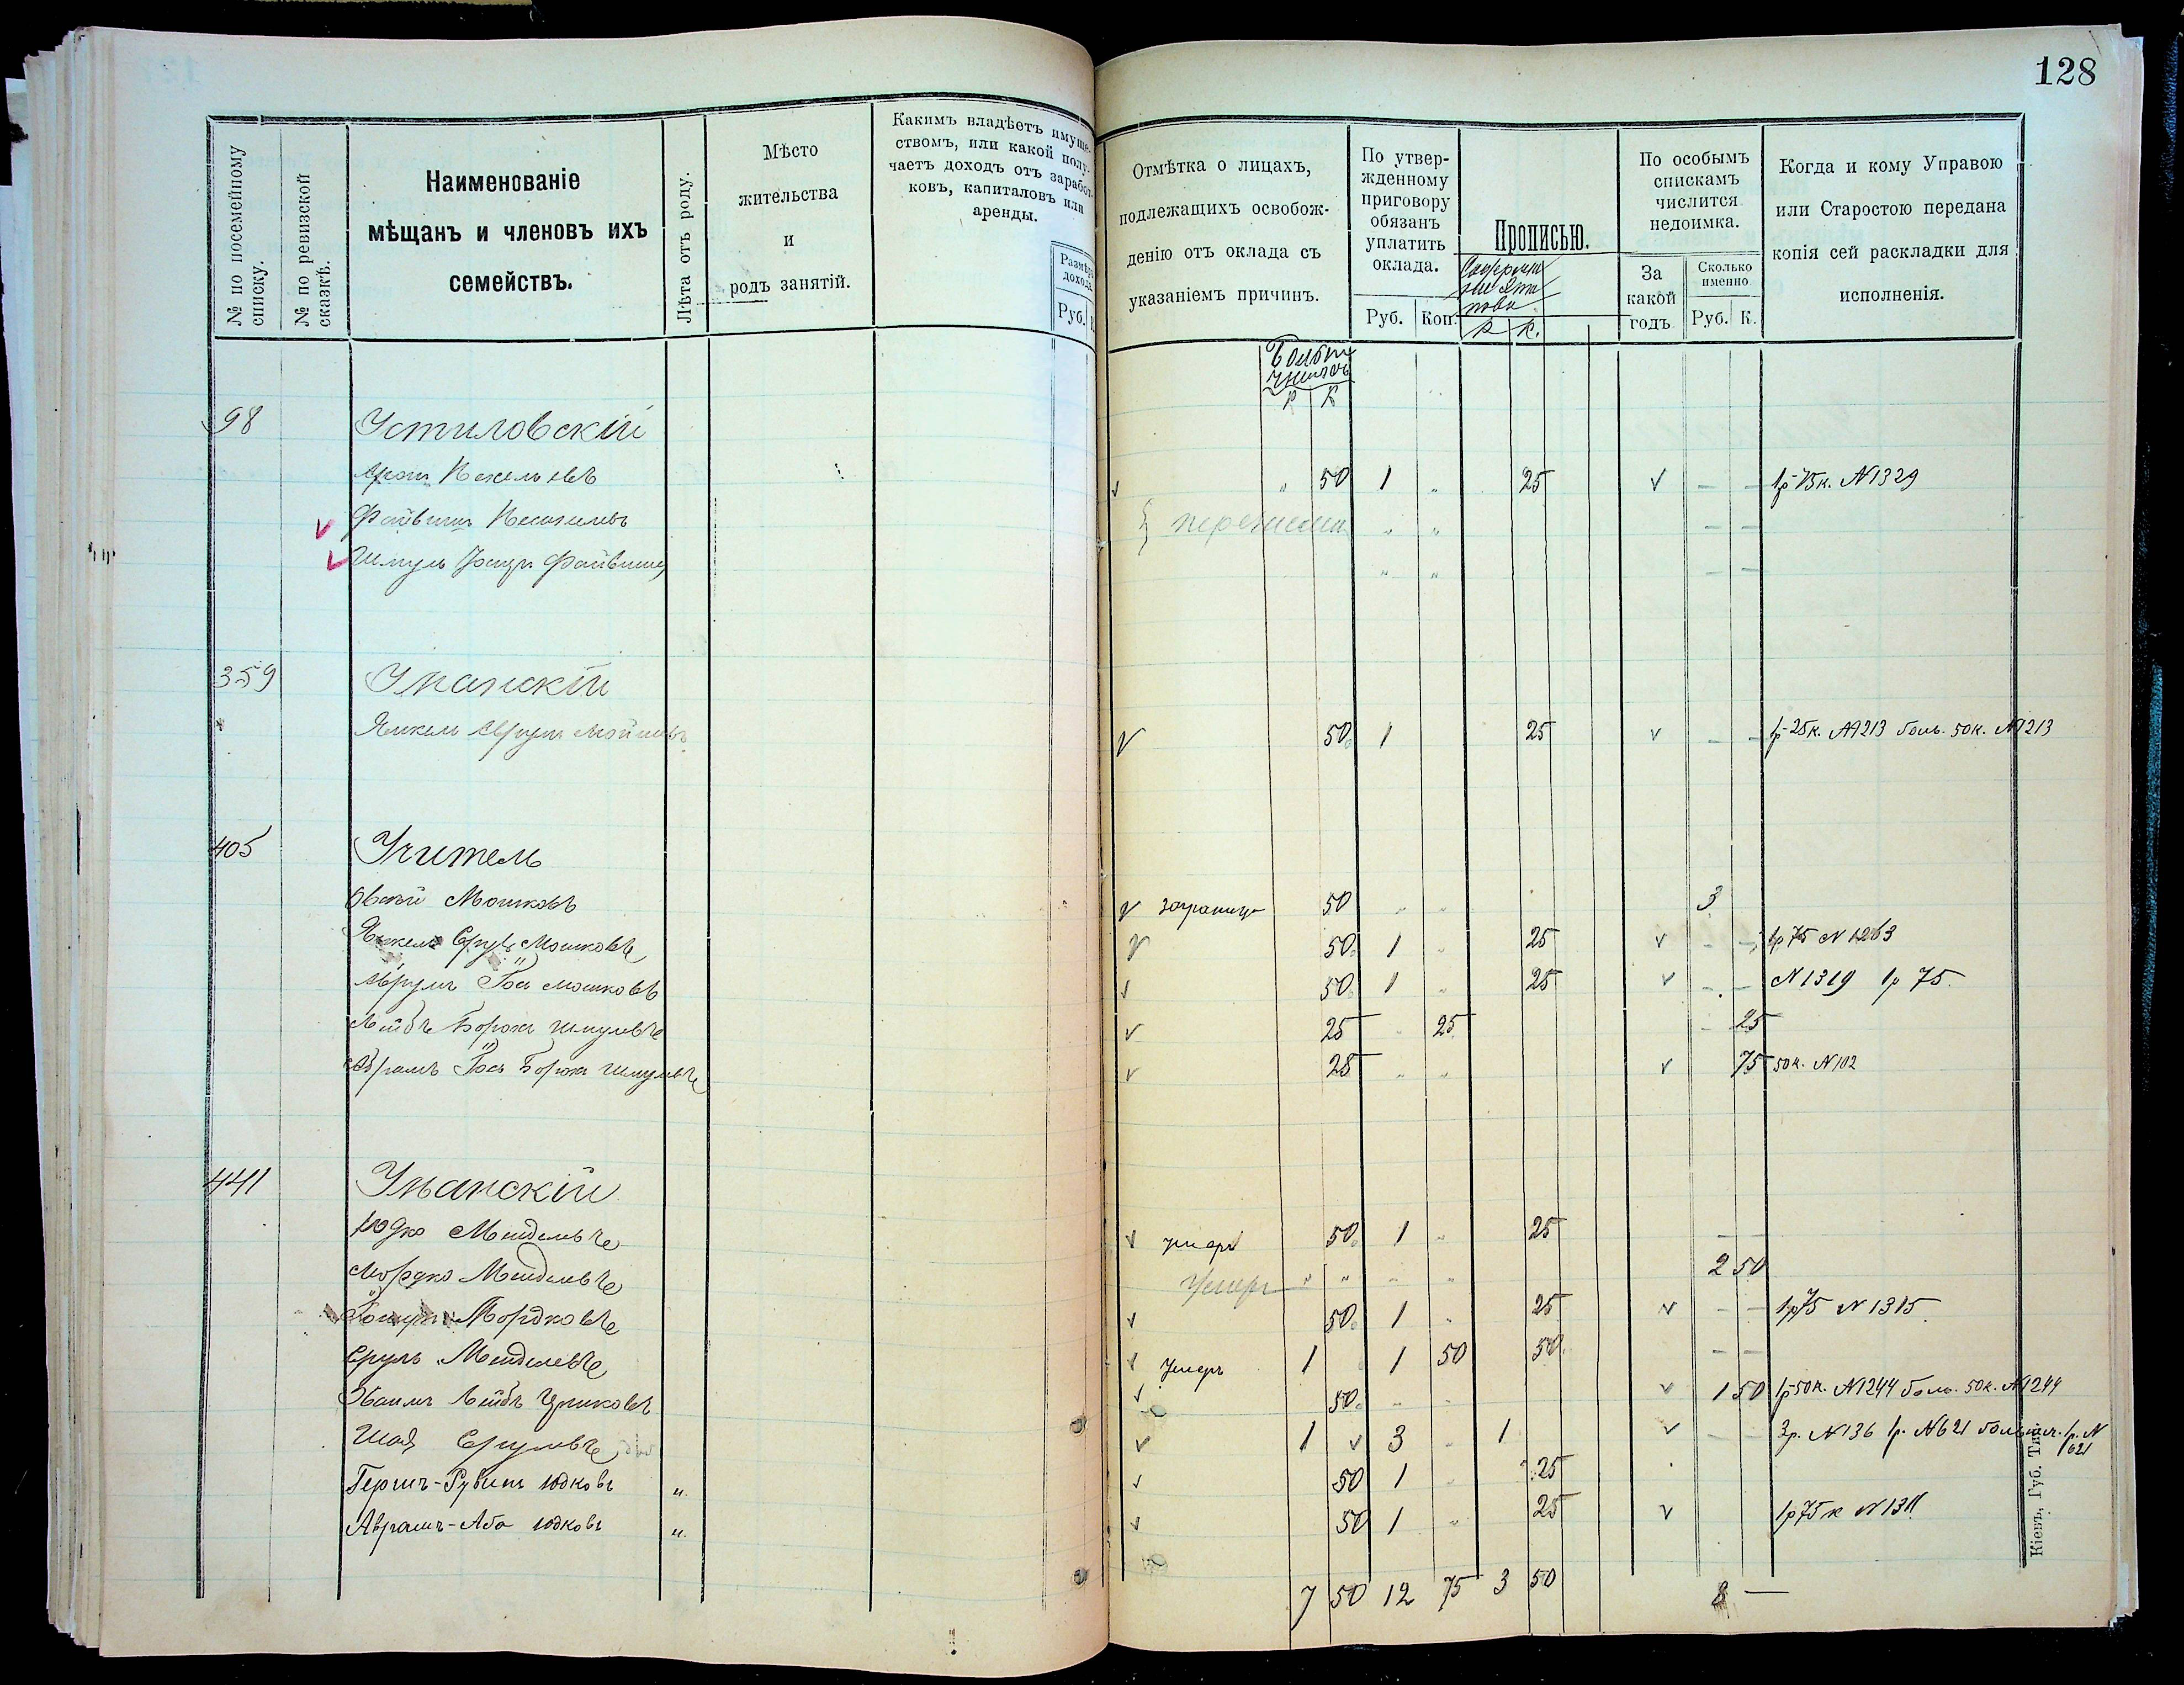 128
№ по посемейному списку.
№ по ревизской сказкѣ.
Наименованіе
мѣщанъ и членовъ ихъ
семействъ.
Лѣта отъ роду.
Мѣсто
жительства
и
родъ занятій.
Какимъ владѣетъ имуще-
ствомъ, или какой полу-
чаетъ доходъ отъ заработ-
ковъ, капиталовъ или
аренды.
Размѣръ
дохода
Руб.
Отмѣтка о лицахъ,
подлежащихъ освобож-
денію отъ оклада съ
указаніемъ причинъ.
По утвер-
жденному
приговору
обязанъ
уплатить
оклада.
Руб. Коп.
Прописью.
Р К.
По особымъ
спискамъ
числится
недоимка.
За
какой
годъ
Сколько
именно
Руб. К.
Когда и кому Управою
или Старостою передана
копія сей раскладки для
исполненія.
Р К
98 Устиловскій
50 1 " 25 √ — — 1р 75к. N1329
Файвишъ
Шмуль Файвиш
359 Уманскій
Янкель Аврумъ Мошковъ √ 50 1 25 √ — — 1р 25к. N1213 боль. 50к. N1213
405 Учитель
Овсѣй Мошковъ √ заграницу 50 " " 3
Янкель Сруль Мошковъ √ 50 1 " 25 √ — — 1р 75 N 1263
Аврумъ Іось Мошковъ √ 50 1 " 25 √ — — N1319 1р 75.
Лейбъ Борохъ Шмулевъ √ 25 " 25 — 25
Абрамъ Іось Борохъ Шмулевъ √ 25 " " √ 75 50к. N102
441 Уманскій
Юдко Мендель √ умеръ 50 1 " 25 — —
Мордко Мендель Умеръ " " " " 2 50
Мордковъ √ 50 1 " 25 √ — — 1р75 N 1315
Сруль Мендель √ Умеръ 1 1 50 50 — —
Хаимъ Лейбъ √ 50 " " √ 1 50 1р50к. N1244 боль. 50к. N1244
Шая Срулевъ √ 1 √ 3 " 1 √ — — 3р. N136 1р. N621 1р. N 621
Гершъ-Рубинъ Юдковъ " √ 50 1 " 25
Аврамъ-Аба Юдковъ " √ 50 1 " 25 √ 1р75к
7 50 12 75 3 50 8 —
Кіевъ, Губ. Тип.